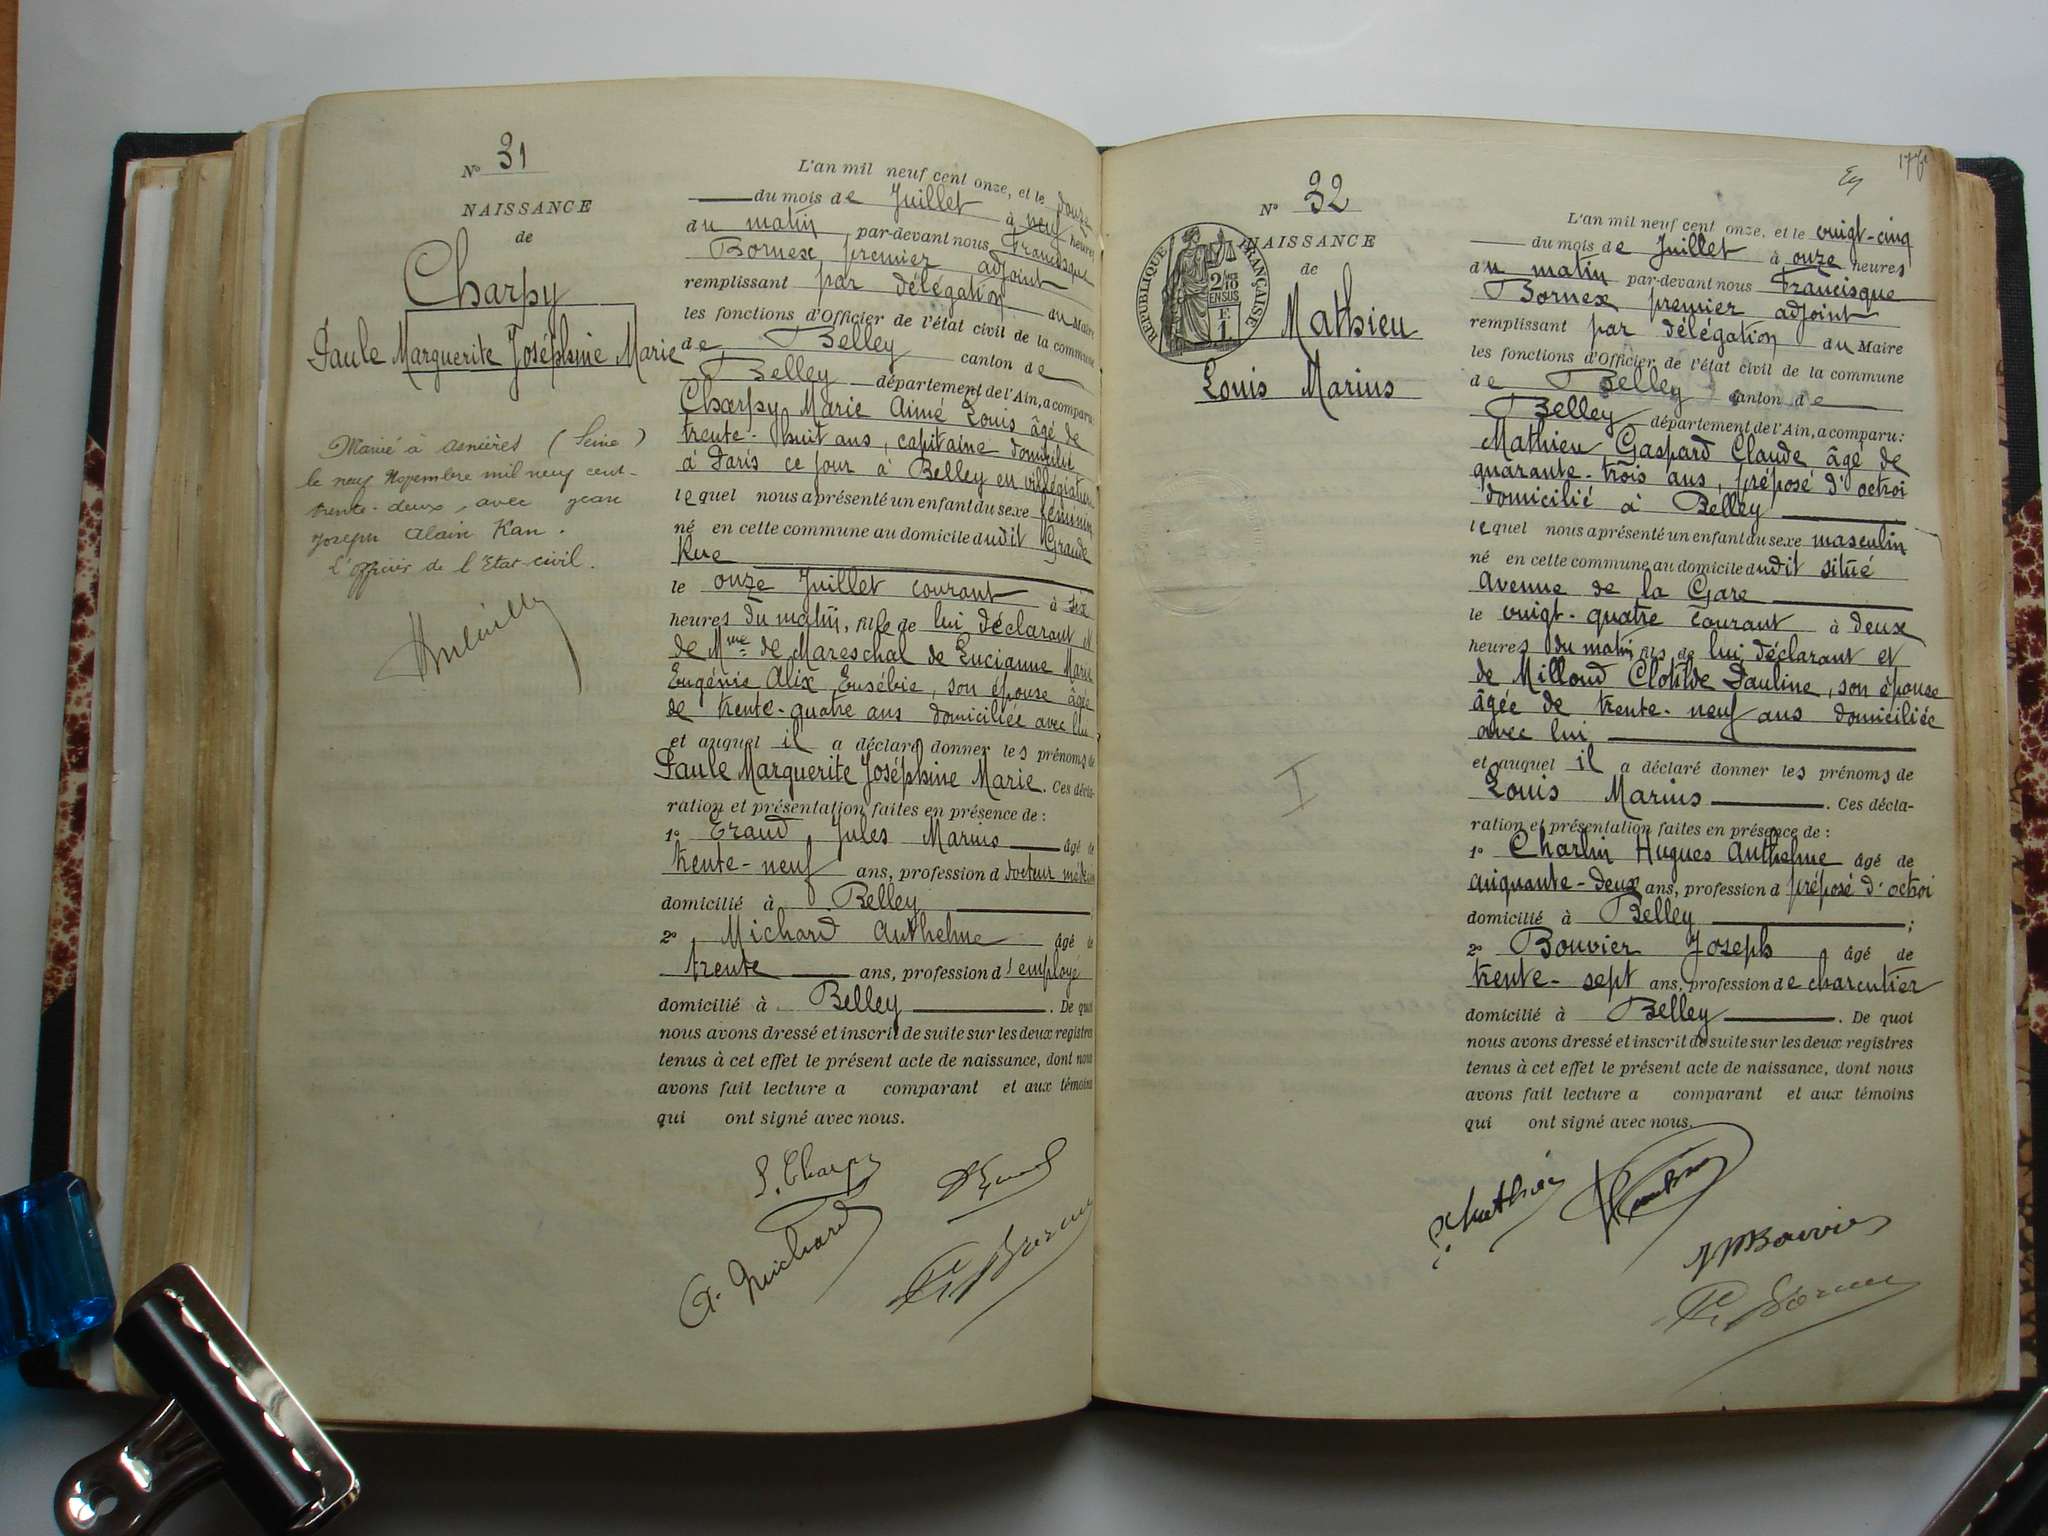 N° 31
NAISSANCE
de
Charpy
Paule Marguerite Joséphine Marie
Marié à Asnières (Seine)
le neuf Novembre mil neuf cent
trente-deux, avec Jean
Joseph Alain Kan.
L'officier de l'Etat-civil.
L'an mil neuf cent onze, et le douze
du mois de Juillet à neuf heures
du matin par-devant nous Francisque
Bornex premier adjoint
remplissant par délégation du Maire
les fonctions d'Officier de l'état civil de la commune
de Belley canton de
Belley département de l'Ain, a comparu:
Charpy Marie Aimé Louis âgé de
trente-huit ans, capitaine domicilié
à Paris ce jour à Belley en villégiature
lequel nous a présenté un enfant du sexe féminin
né en cette commune au domicile dudit Grande
Rue
le onze Juillet courant à six
heures du matin, fille de lui déclarant et
de Mme de Mareschal de Lucianne Marie
Eugénie Alix Eusébie, son épouse âgée
de trente-quatre ans domiciliée avec lui
et auquel il a déclaré donner les prénoms de
Paule Marguerite Joséphine Marie. Ces décla-
ration et présentation faites en présence de :
1° Jules Marius âgé de
trente-neuf ans, profession d docteur médecin
domicilié à Belley ;
2° Michard Anthelme âgé de
trente ans, profession d'employé
domicilié à Belley . De quoi
nous avons dressé et inscrit de suite sur les deux registres
tenus à cet effet le présent acte de naissance, dont nous
avons fait lecture a comparant et aux témoins
qui ont signé avec nous.
L. Charpy
A. Michard
N° 32
NAISSANCE
de
RÉPUBLIQUE FRANÇAISE
2/10
EN SUS
E
1
Mathieu
Louis Marius
L'an mil neuf cent onze, et le vingt-cinq
du mois de Juillet à onze heures
du matin par-devant nous Francisque
Bornex premier adjoint
remplissant par délégation du Maire
les fonctions d'Officier de l'état civil de la commune
de Belley canton de
Belley département de l'Ain, a comparu:
Mathieu Gaspard Claude âgé de
quarante-trois ans, préposé d'octroi
domicilié à Belley
lequel nous a présenté un enfant du sexe masculin
né en cette commune au domicile dudit situé
Avenue de la Gare
le vingt-quatre courant à deux
heures du matin fils de lui déclarant et
de Milloud Clotilde Pauline, son épouse
âgée de trente-neuf ans domiciliée
avec lui
et auquel il a déclaré donner les prénoms de
Louis Marius . Ces décla-
ration et présentation faites en présence de :
1° Charlin Hugues Anthelme âgé de
cinquante-deux ans, profession d préposé d'octroi
domicilié à Belley ;
2° Bouvier Joseph âgé de
trente-sept ans, profession de charcutier
domicilié à Belley . De quoi
nous avons dressé et inscrit de suite sur les deux registres
tenus à cet effet le présent acte de naissance, dont nous
avons fait lecture a comparant et aux témoins
qui ont signé avec nous.
Mathieu
Bouvier